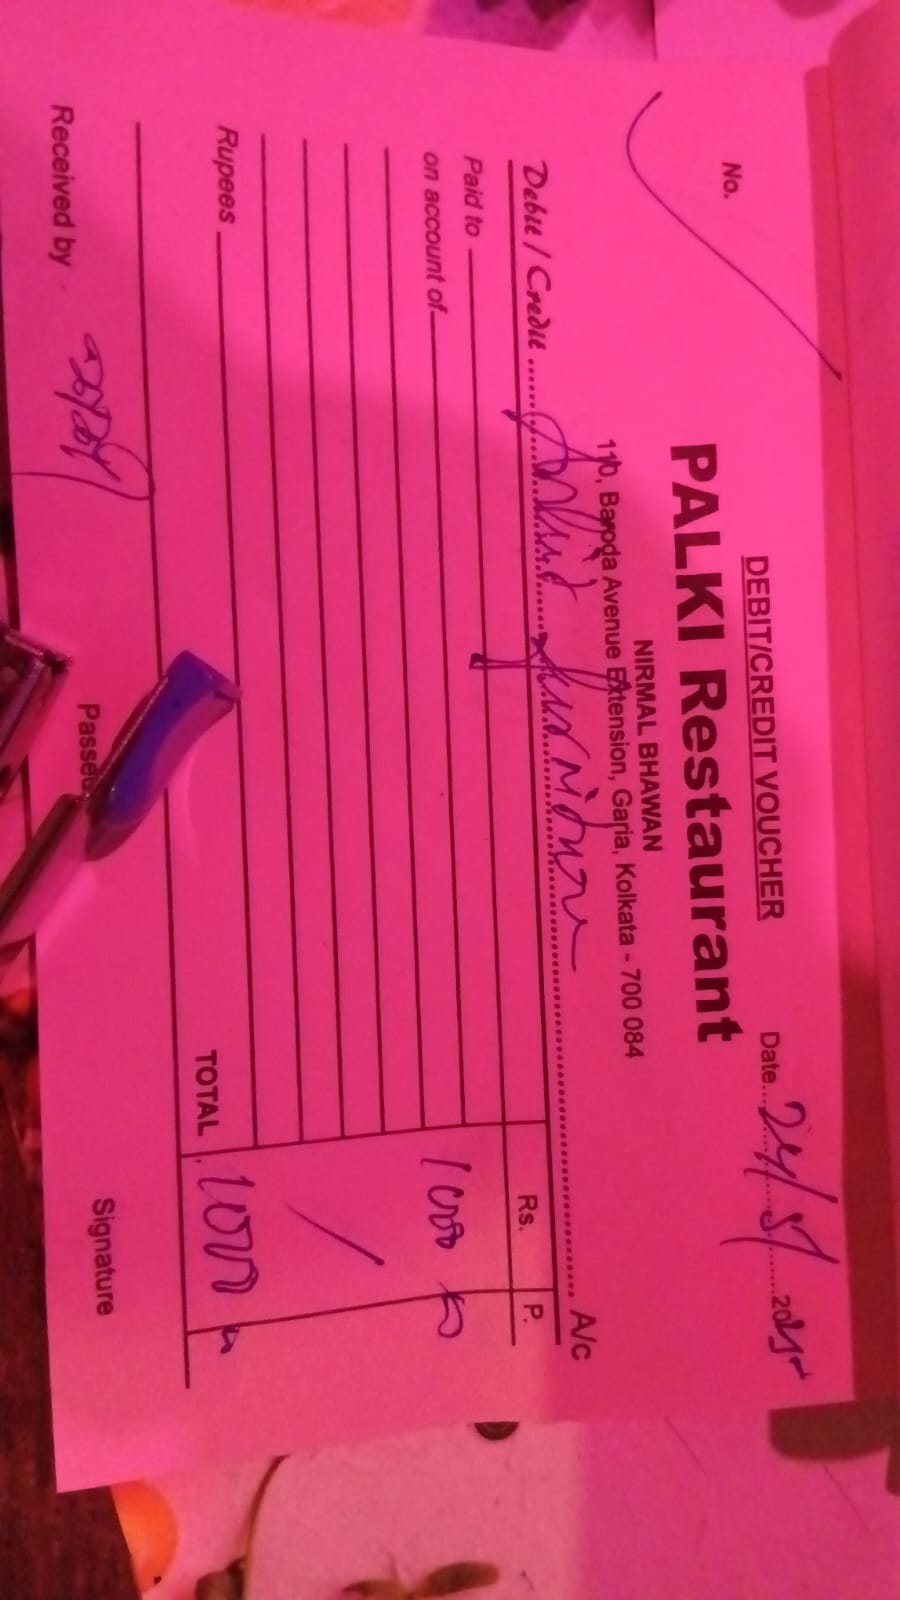 DEBIT/CREDIT VOUCHER
No.
Date 24/5/ 2025
PALKI Restaurant
NIRMAL BHAWAN
110, Baroda Avenue Extension, Garia, Kolkata - 700 084
Debit / Credit A/c
Rs. P.
Paid to
on account of 1000
Rupees
TOTAL 1000
Received by Passed Signature